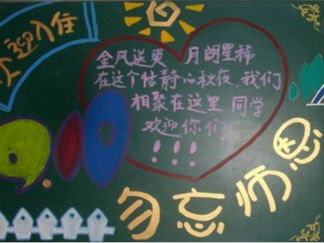 欢迎入住
金风送爽 月朗星稀
在这个恬静的秋夜,我们
相聚在这里 同学
欢迎你们
!!!
9.10
勿忘师恩